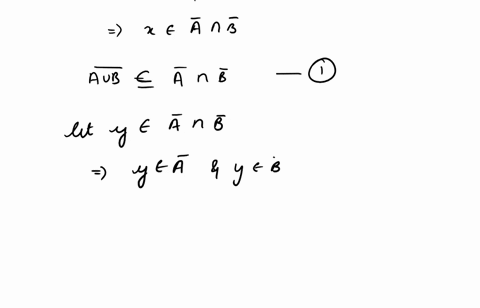 ⇒ x ∈ A̅ ∩ B̅
A̅∪̅B̅ ⊆ A̅ ∩ B̅ — ①
let y ∈ A̅ ∩ B̅
⇒ y ∈ A̅ & y ∈ B